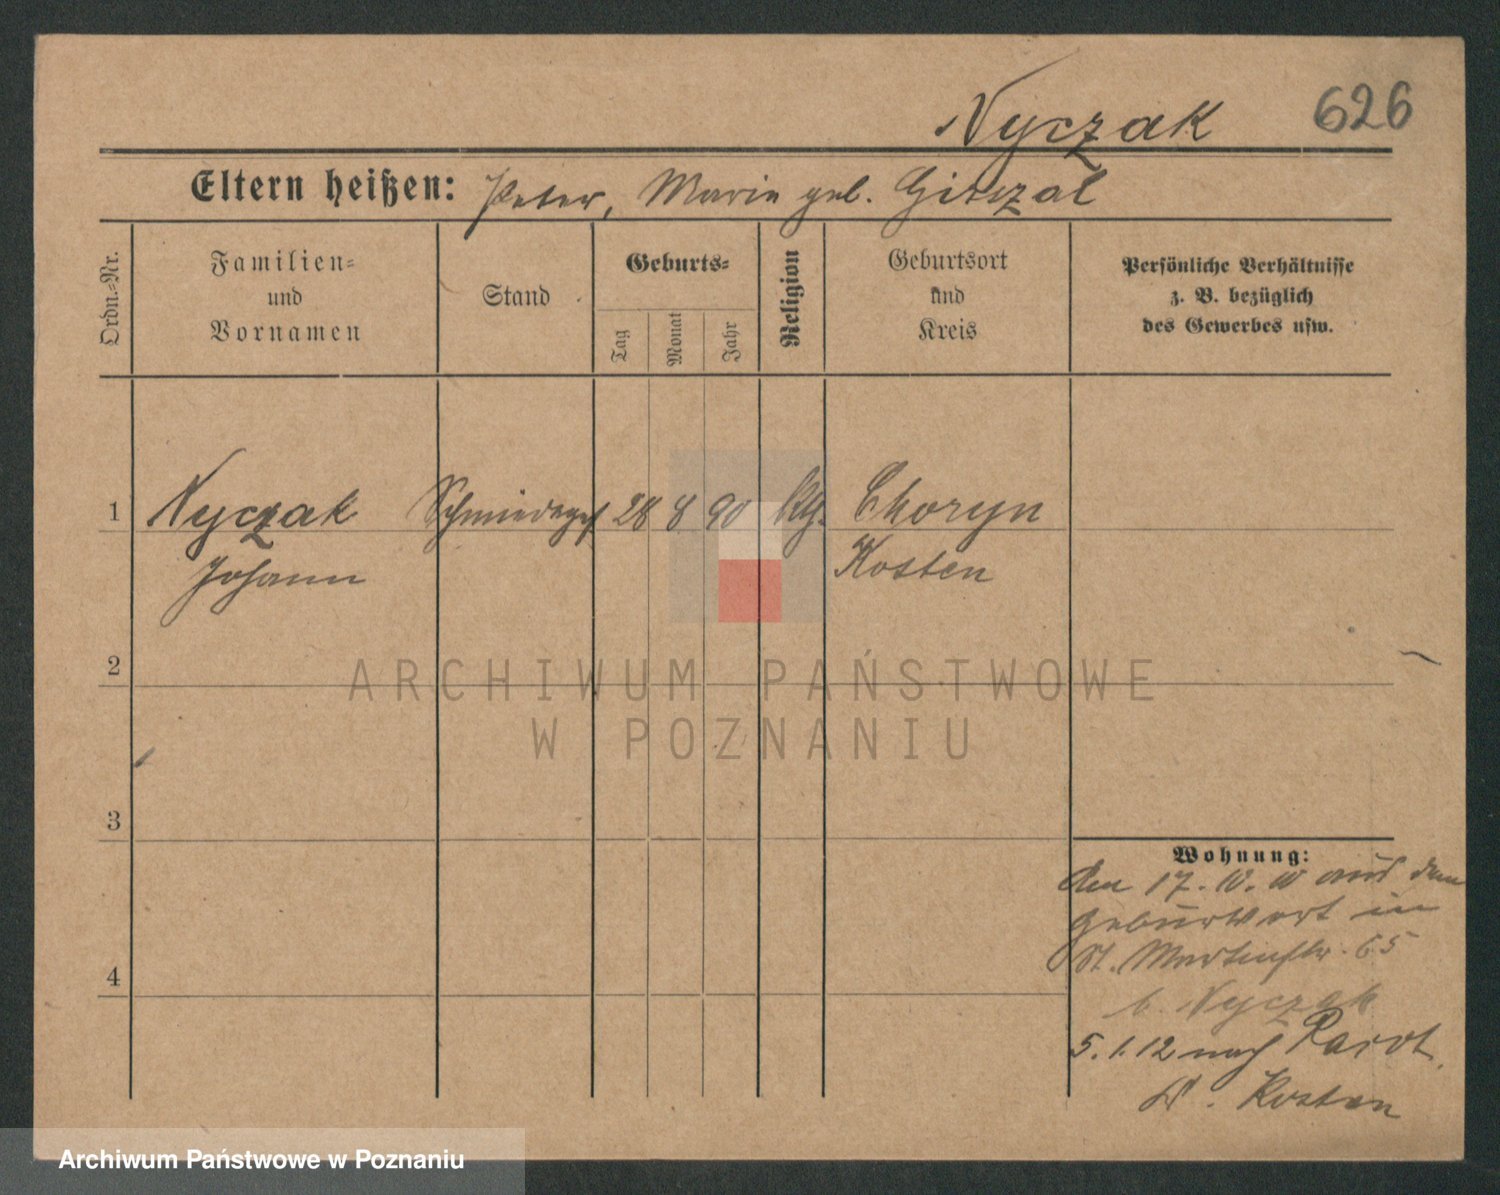 Nyczak 626
Eltern heißen: Peter, Marie geb.
Ordn.-Nr.
Familien-
und
Vornamen
Stand
Geburts-
Tag
Monat
Jahr
Religion
Geburtsort
und
Kreis
Persönliche Verhältnisse
z. B. bezüglich
des Gewerbes usw.
1 Nyczak Schmiedeges 28 8 90 Kth. Choryn
Johann Kosten
2
ARCHIWUM PAŃSTWOWE
W POZNANIU
3
Wohnung:
Den 17. 10. 10 aus dem
Geburtsort in
St. Martinstr. 65
b. Nyczak
4
5.1.12 nach
Kr. Kosten
Archiwum Państwowe w Poznaniu